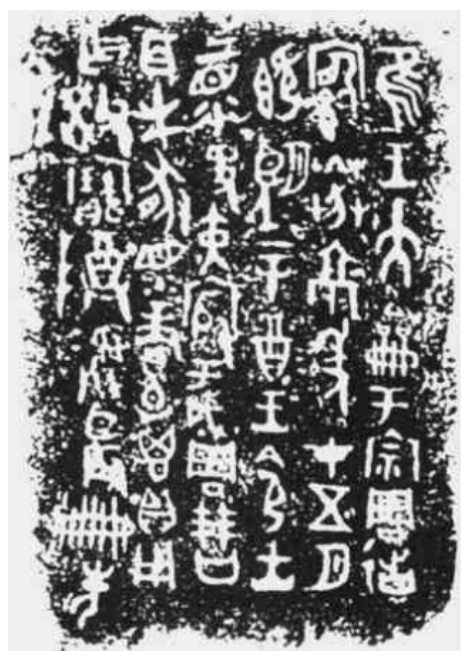 隹王大龠于宗周徣
京年才五月
既望辛酉王令士
上眔史寅殷于成周
百生豚眔賞卣鬯貝
用乍父癸寶尊彝臣辰冊